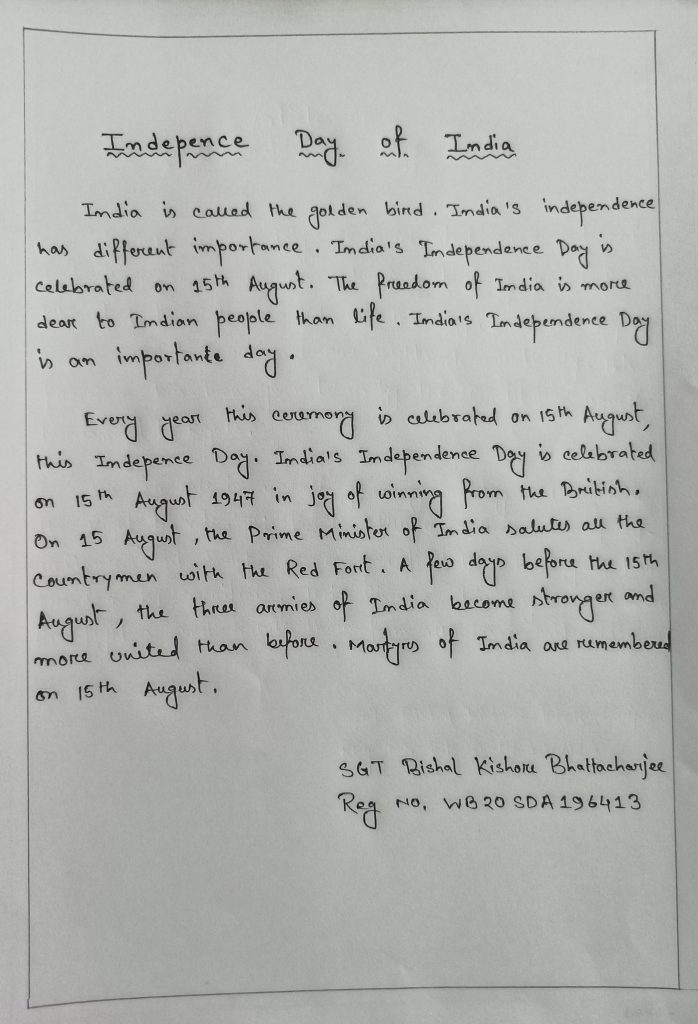 Indepence Day of India
India is called the golden bird. India's independence
has different importance. India's Independence Day is
celebrated on 15th August. The freedom of India is more
dear to Indian people than life. India's Independence Day
is an importante day.
Every year this ceremony is celebrated on 15th August,
this Indepence Day. India's Independence Day is celebrated
on 15th August 1947 in joy of winning from the British.
On 15 August, the Prime Minister of India salutes all the
Countrymen with the Red Fort. A few days before the 15th
August, the three armies of India become stronger and
more united than before. Martyrs of India are remembered
on 15th August.
SGT Bishal Kishore Bhattacharjee
Reg No. WB20SDA196413